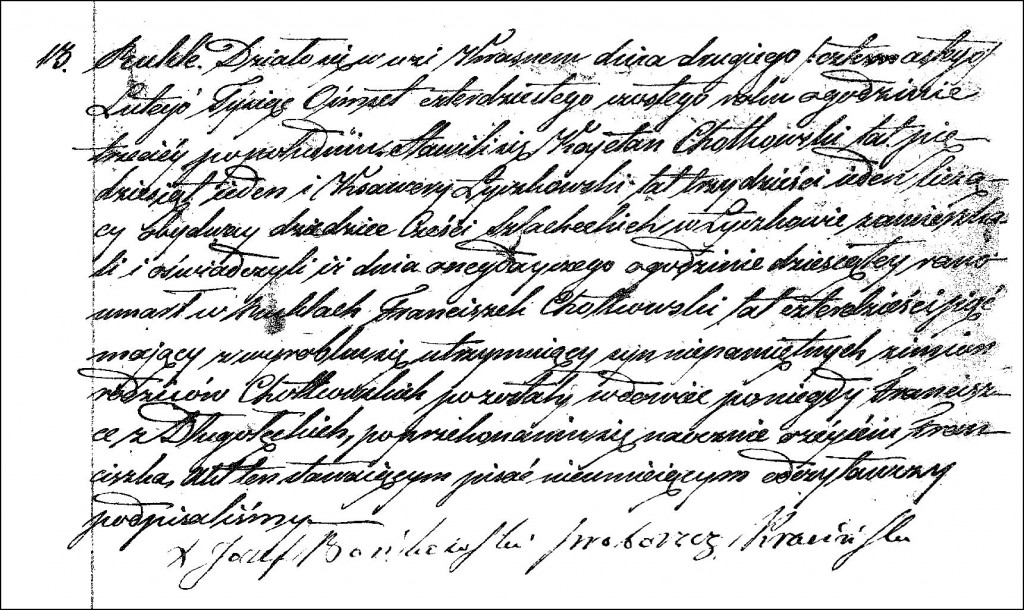 13. Rukle. Działo się w wsi Krasnem dnia drugiego /: czternastego/
Lutego Tysiąc Ośmset czterdziestego szóstego roku o godzinie
trzeciéy popołudniu. Stawili się Kajetan Chotkowski, lat pię-
dziesiąt ieden i Xsawery Łyczkowski lat trzydzieści ieden liczą-
cy obydway dziedzice Cześci Szlacheckich w Łyczkowie zamieszka-
li i oświadczyli iż dnia onegdayszego o godzinie dziesiątey rano
umarł w Ruklach Franciszek Chotkowski, lat czterdzieści pięć
mający z wyrobku się utrzymuiący syn niepamiętnych z imion
rodziców Chotkowskich pozostały wdowiec po niegdy Francisz-
ce z Długołęckich, po przekonaniu się naocznie o zéyściu Fran-
ciszka, Akt ten stawaiącym pisać nieumieiącym odczytawszy
podpisaliśmy.
X Józef Proboszcz Krasiński